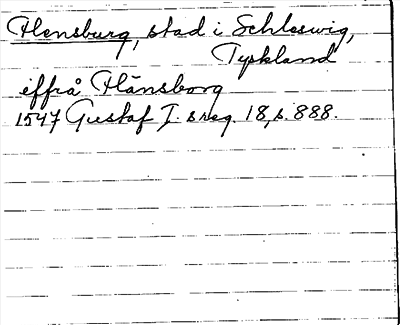 Flensburg, stad i Schleswig,
Tyskland
iffrå Flänsborg
1547 Gustaf I. s reg. 18, s. 888.